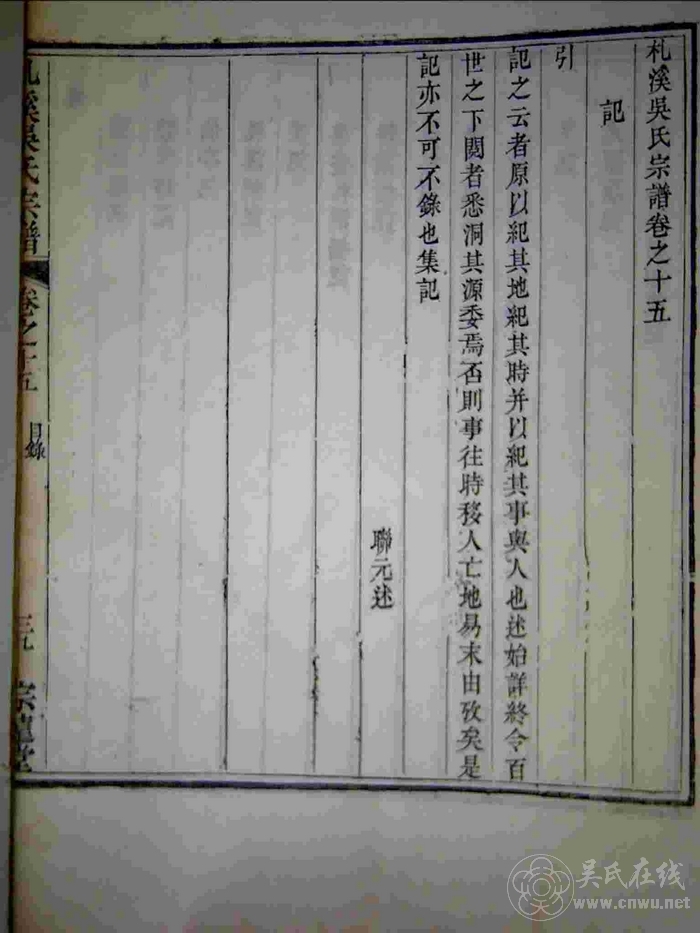 札溪吳氏宗譜卷之十五
記
引
記之云者原以紀其地紀其時并以紀其事與人也述始詳終令百
世之下閱者悉洞其源委焉否則事往時移人亡地易末由攷矣是
記亦不可不錄也集記
聯元述
札溪吳氏宗譜
卷之十五
目錄
三九
吴氏在线
www.cnwu.net